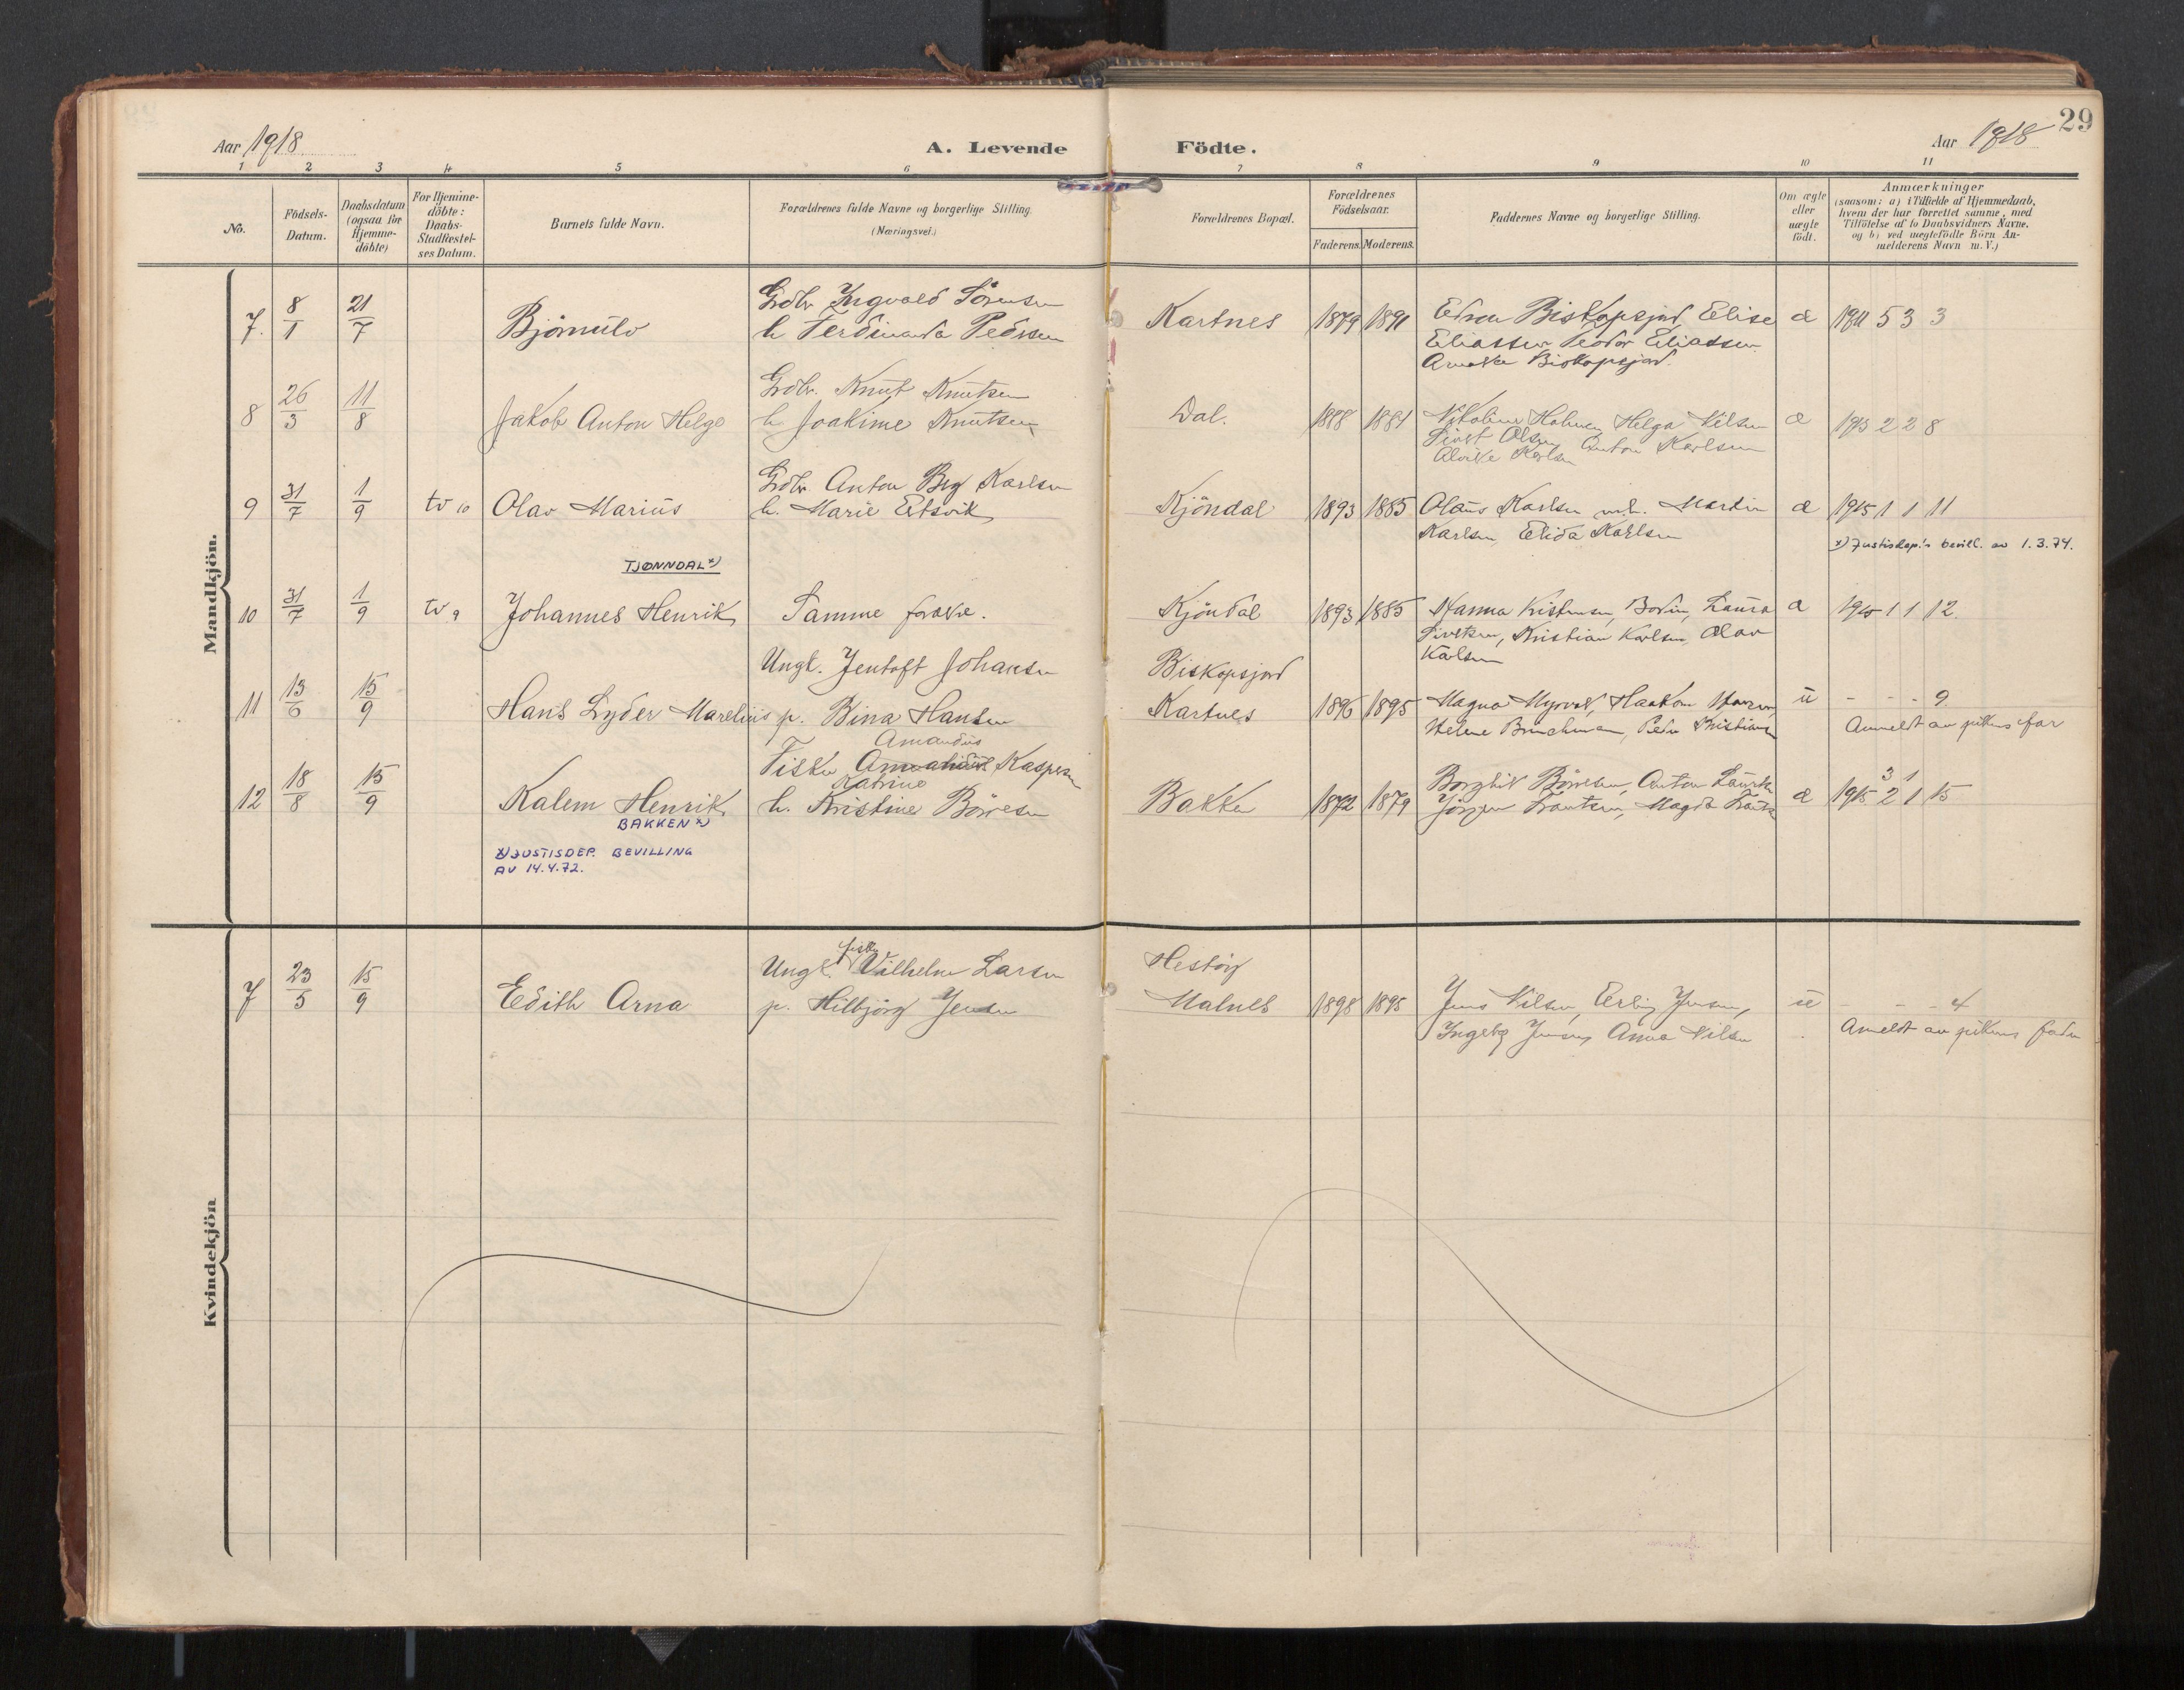 29
Aar 1918
A. Levende Födte.
Aar 1918
1 2 3 4 5 6 7 8 9 10 11
No.
Födsels-
Datum.
Daabsdatum
(ogsaa for
Hjemme-
döbte)
For Hjemme-
döbte:
Daabs-
Stadfæstel-
ses Datum.
Barnets fulde Navn.
Forældrenes fulde Navne og borgerlige Stilling.
(Næringsvei.)
Forældrenes Bopæl.
Forældrenes
Födselsaar.
Faderens. Moderens.
Faddernes Navne og borgerlige Stilling.
Om ægte
eller
uægte
födt.
Anmærkninger
(saasom: a) i Tilfælde af Hjemmedaab,
hvem der har forrettet samme, med
Tilföielse af to Daabsvidners Navne.
og b) ved uægtefödte Börn An-
melderens Navn m. V.)
Mandkjön.
7. 8/1 21/7 Björnulv
Grdbr. Ingvald Sörensen
h Ferdinanda Pedersen
Kartnes 1879 1891
Biskopsjord, Elise
Eliassen Peder Eliassen
Biskopsjord.
æ 1911 5 3 3
8 26/3 11/8 Jakob Anton Helge
Grdbr. Knut Knutsen
h Joakime Knutsen
Dal. 1888 1881
Nikoline Helga Nilsen
Sivert Olsen, Anton Karlsen
Karlsen
æ 1913 2 2 8
9 31/7 1/9 tv 10 Olav Marius
Grdbr. Anton Berg Karlsen
h. Marie Edsvik
Kjöndal 1893 1885
Olaus Karlsen m.h. Martin
Karlsen, Elida Karlsen
æ 1915 1 1 11
x) Justisdep.'s bevill. av 1.3.74.
TJØNNDAL x)
10 31/7 1/9 tv 9 Johannes Henrik
Samme forældre.
Kjöndal 1893 1885
Hanna Kristensen, Laura
Sivertsen, Kristian Karlsen, Olav
Karlsen
æ 1915 1 1 12.
11 13/6 15/9 Hans Lyder Marelius
Ungk. Jentoft Johansen
p. Bina Hansen
Biskopsjord
Kartnes 1896 1895
Magna Myrvol, Haakon
Helene Peder Kristiansen
u - - - 9
Anmeldt av pikens far
12 18/8 15/9 Kalem Henrik
BAKKEN x)
x) JUSTISDEP. BEVILLING
AV 14.4.72.
Amandus
Fisker Kaspersen
Katrine
h. Kristine Börresen
Bakken 1872 1879
Borghil Börresen, Anton
Jörgen Magda
æ 3 1
1915 2 1 15
Kvindekjön
7 23/5 15/9 Edith Arna
fisker
Ungk. Vilhelm Larsen
p. Hilbjörg Jensen
Malnes 1898 1895
Jens Nilsen, Erling Jensen,
Ingebg Jensen, Anna Nilsen
u - - - 4
Anmeldt av pikens fader